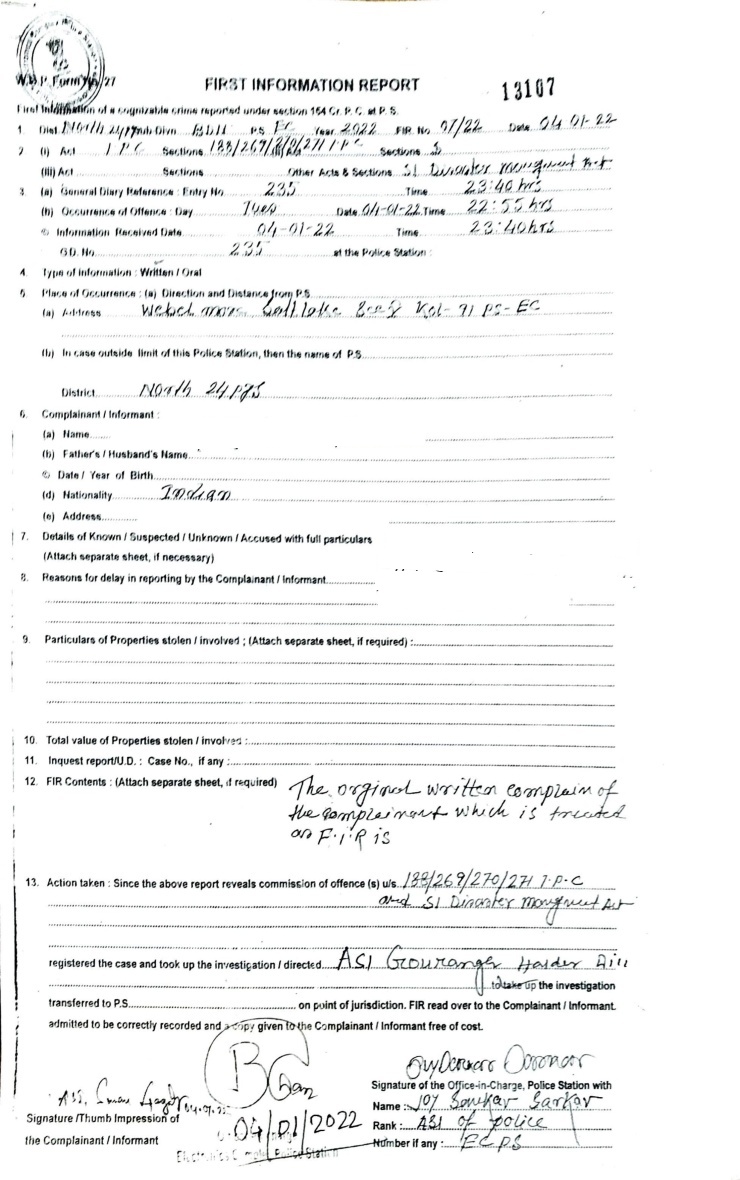 W.B.P. Form No. 27
FIRST INFORMATION REPORT
13107
First Information of a cognizable crime reported under section 154 Cr. P. C. at P. S.
1. Dist. North 24 Sub Divn P.S. EC Year 2022 FIR No 07/22 Date 04 01-22
2. (i) Act I P C Sections 188/269/270/271 I P C Sections
(iii) Act Sections Other Acts & Sections 51 Disaster Mangment Act
3. (a) General Diary Reference : Entry No 235 Time 23:40 hrs
(b) Occurrence of Offence : Day Tues Date 04-01-22 Time 22:55 hrs
© Information Received Date 04-01-22 Time 23:40hrs
GD. No. 235 at the Police Station :
4. Type of Information : Written / Oral
5. Place of Occurrence : (a) Direction and Distance from P.S
(a) Address Webel more Salt lake Sec-V Kol- 91 PS- EC
(b) In case outside limit of this Police Station, then the name of P.S
District North 24 PGS
6. Complainant / Informant :
(a) Name
(b) Father's / Husband's Name
© Date / Year of Birth
(d) Nationality Indian
(e) Address
7. Details of Known / Suspected / Unknown / Accused with full particulars
(Attach separate sheet, if necessary)
8. Reasons for delay in reporting by the Complainant / Informant
9. Particulars of Properties stolen / involved ; (Attach separate sheet, if required) :
10. Total value of Properties stolen / involved :
11. Inquest report/U.D. : Case No., if any :
12. FIR Contents : (Attach separate sheet, if required) The orginal written complain of
the complainent which is treated
as F.I.R is
13. Action taken : Since the above report reveals commission of offence (s) u/s 188/269/270/271 I.P.C
and 51 Disaster Mongment Act
registered the case and took up the investigation / directed ASI Gouranga Halder
to take up the investigation
transferred to P.S. on point of jurisdiction. FIR read over to the Complainant / Informant.
admitted to be correctly recorded and a copy given to the Complainant / Informant free of cost.
Signature of the Office-in-Charge, Police Station with
Name : Joy Sankar Sarkar
Signature /Thumb Impression of
04/01/2022
Rank : ASI of police
the Complainant / Informant
Number if any : ECPS
Electronics Complex Police Station